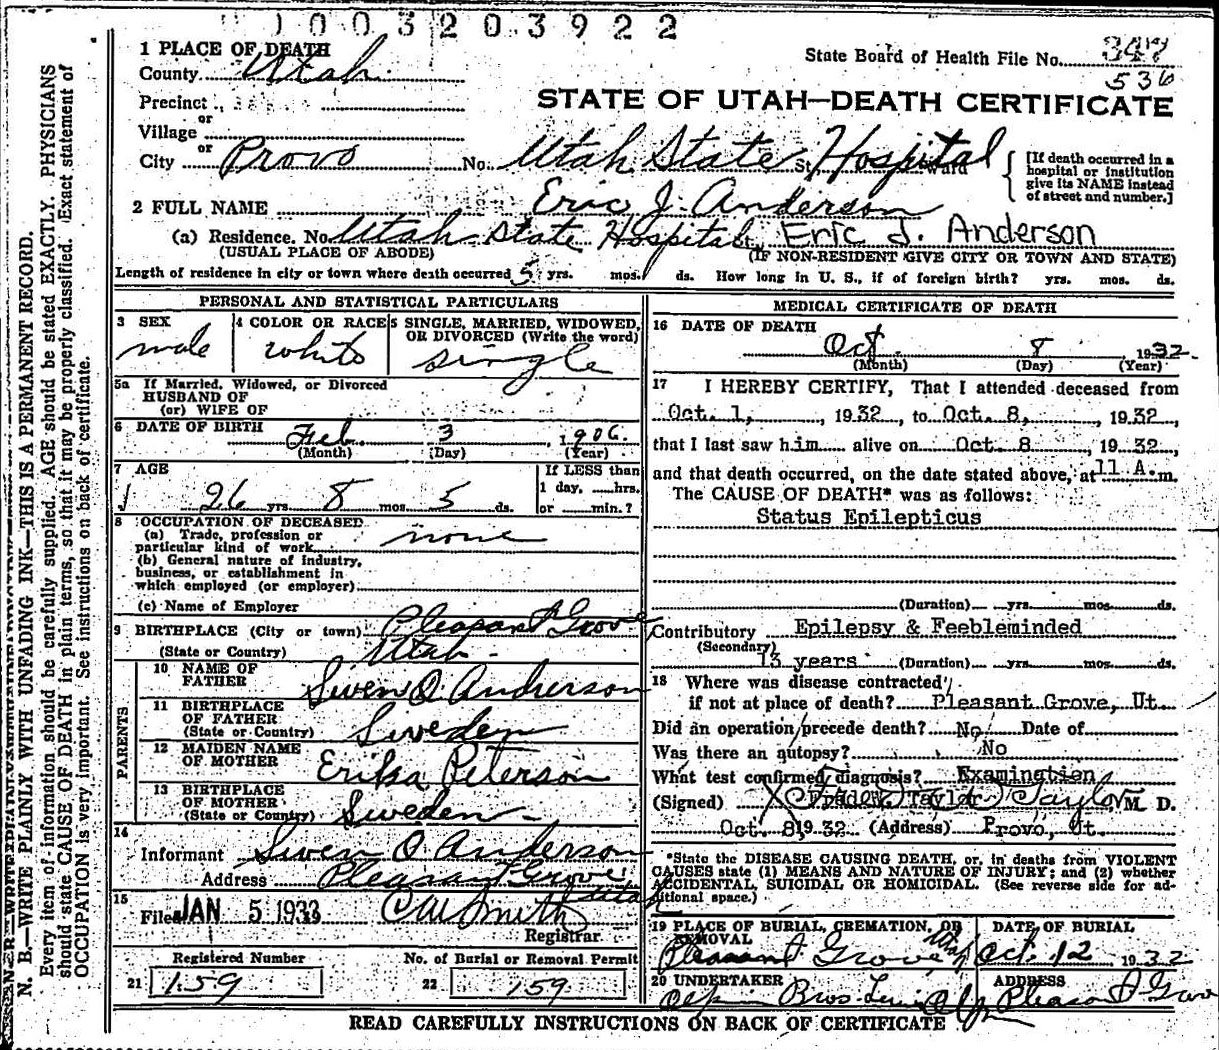 1003203922
1 PLACE OF DEATH
County Utah
State Board of Health File No. 347
536
Precinct
or
STATE OF UTAH—DEATH CERTIFICATE
Village
or
City Provo No. Utah State Hospital St. Ward
[If death occurred in a hospital or institution give its NAME instead of street and number.]
2 FULL NAME Eric J. Anderson
(a) Residence. No. Utah State Hospital Eric J. Anderson
(USUAL PLACE OF ABODE) (IF NON-RESIDENT GIVE CITY OR TOWN AND STATE)
Length of residence in city or town where death occurred 5 yrs. mos. ds. How long in U. S., if of foreign birth? yrs. mos. ds.
PERSONAL AND STATISTICAL PARTICULARS
3 SEX male
4 COLOR OR RACE white
5 SINGLE, MARRIED, WIDOWED, OR DIVORCED (Write the word) single
5a If Married, Widowed, or Divorced
HUSBAND OF
(or) WIFE OF
6 DATE OF BIRTH Feb. 3, 1906.
(Month) (Day) (Year)
7 AGE 26 yrs 8 mos 5 ds.
If LESS than
1 day, hrs.
or min.?
8 OCCUPATION OF DECEASED
(a) Trade, profession or
particular kind of work none
(b) General nature of industry,
business, or establishment in
which employed (or employer)
(c) Name of Employer
9 BIRTHPLACE (City or town) Pleasant Grove
(State or Country) Utah
PARENTS
10 NAME OF FATHER Swen O. Anderson
11 BIRTHPLACE OF FATHER (State or Country) Sweden
12 MAIDEN NAME OF MOTHER Erika Peterson
13 BIRTHPLACE OF MOTHER (State or Country) Sweden
14
Informant Swen O. Anderson
Address Pleasant Grove Utah
15
Filed JAN 5 1933 C W Smith
Registrar.
Registered Number No. of Burial or Removal Permit
21 159 22 159
MEDICAL CERTIFICATE OF DEATH
16 DATE OF DEATH
Oct 8, 1932
(Month) (Day) (Year)
17 I HEREBY CERTIFY, That I attended deceased from
Oct. 1, 1932, to Oct. 8, 1932,
that I last saw him alive on Oct. 8, 1932,
and that death occurred, on the date stated above, at 11 A. m.
The CAUSE OF DEATH* was as follows:
Status Epilepticus
(Duration) yrs. mos. ds.
Contributory Epilepsy & Feebleminded
(Secondary)
13 years (Duration) yrs. mos. ds.
18 Where was disease contracted
if not at place of death? Pleasant Grove, Ut.
Did an operation precede death? No Date of
Was there an autopsy? No
What test confirmed diagnosis? Examination
(Signed) Taylor M. D.
Oct. 8, 1932 (Address) Provo, Ut.
*State the DISEASE CAUSING DEATH, or, in deaths from VIOLENT
CAUSES state (1) MEANS AND NATURE OF INJURY; and (2) whether
ACCIDENTAL, SUICIDAL OR HOMICIDAL. (See reverse side for additional space.)
19 PLACE OF BURIAL, CREMATION, OR REMOVAL DATE OF BURIAL
Pleasant Grove Utah Oct. 12 1932
20 UNDERTAKER ADDRESS
Bros. Pleasant Grove
READ CAREFULLY INSTRUCTIONS ON BACK OF CERTIFICATE
N. B.—WRITE PLAINLY WITH UNFADING INK—THIS IS A PERMANENT RECORD.
Every item of information should be carefully supplied. AGE should be stated EXACTLY. PHYSICIANS
should state CAUSE OF DEATH in plain terms, so that it may be properly classified. Exact statement of
OCCUPATION is very important. See instructions on back of certificate.